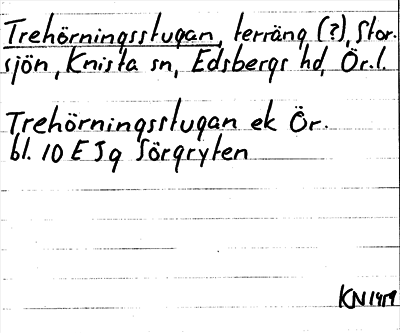 Trehörningsstugan, terräng (?), Stor-
sjön, Knista sn, Edsbergs hd, Ör. l.
Trehörningsstugan ek Ör.
bl. 10 E 5g Sörgryten